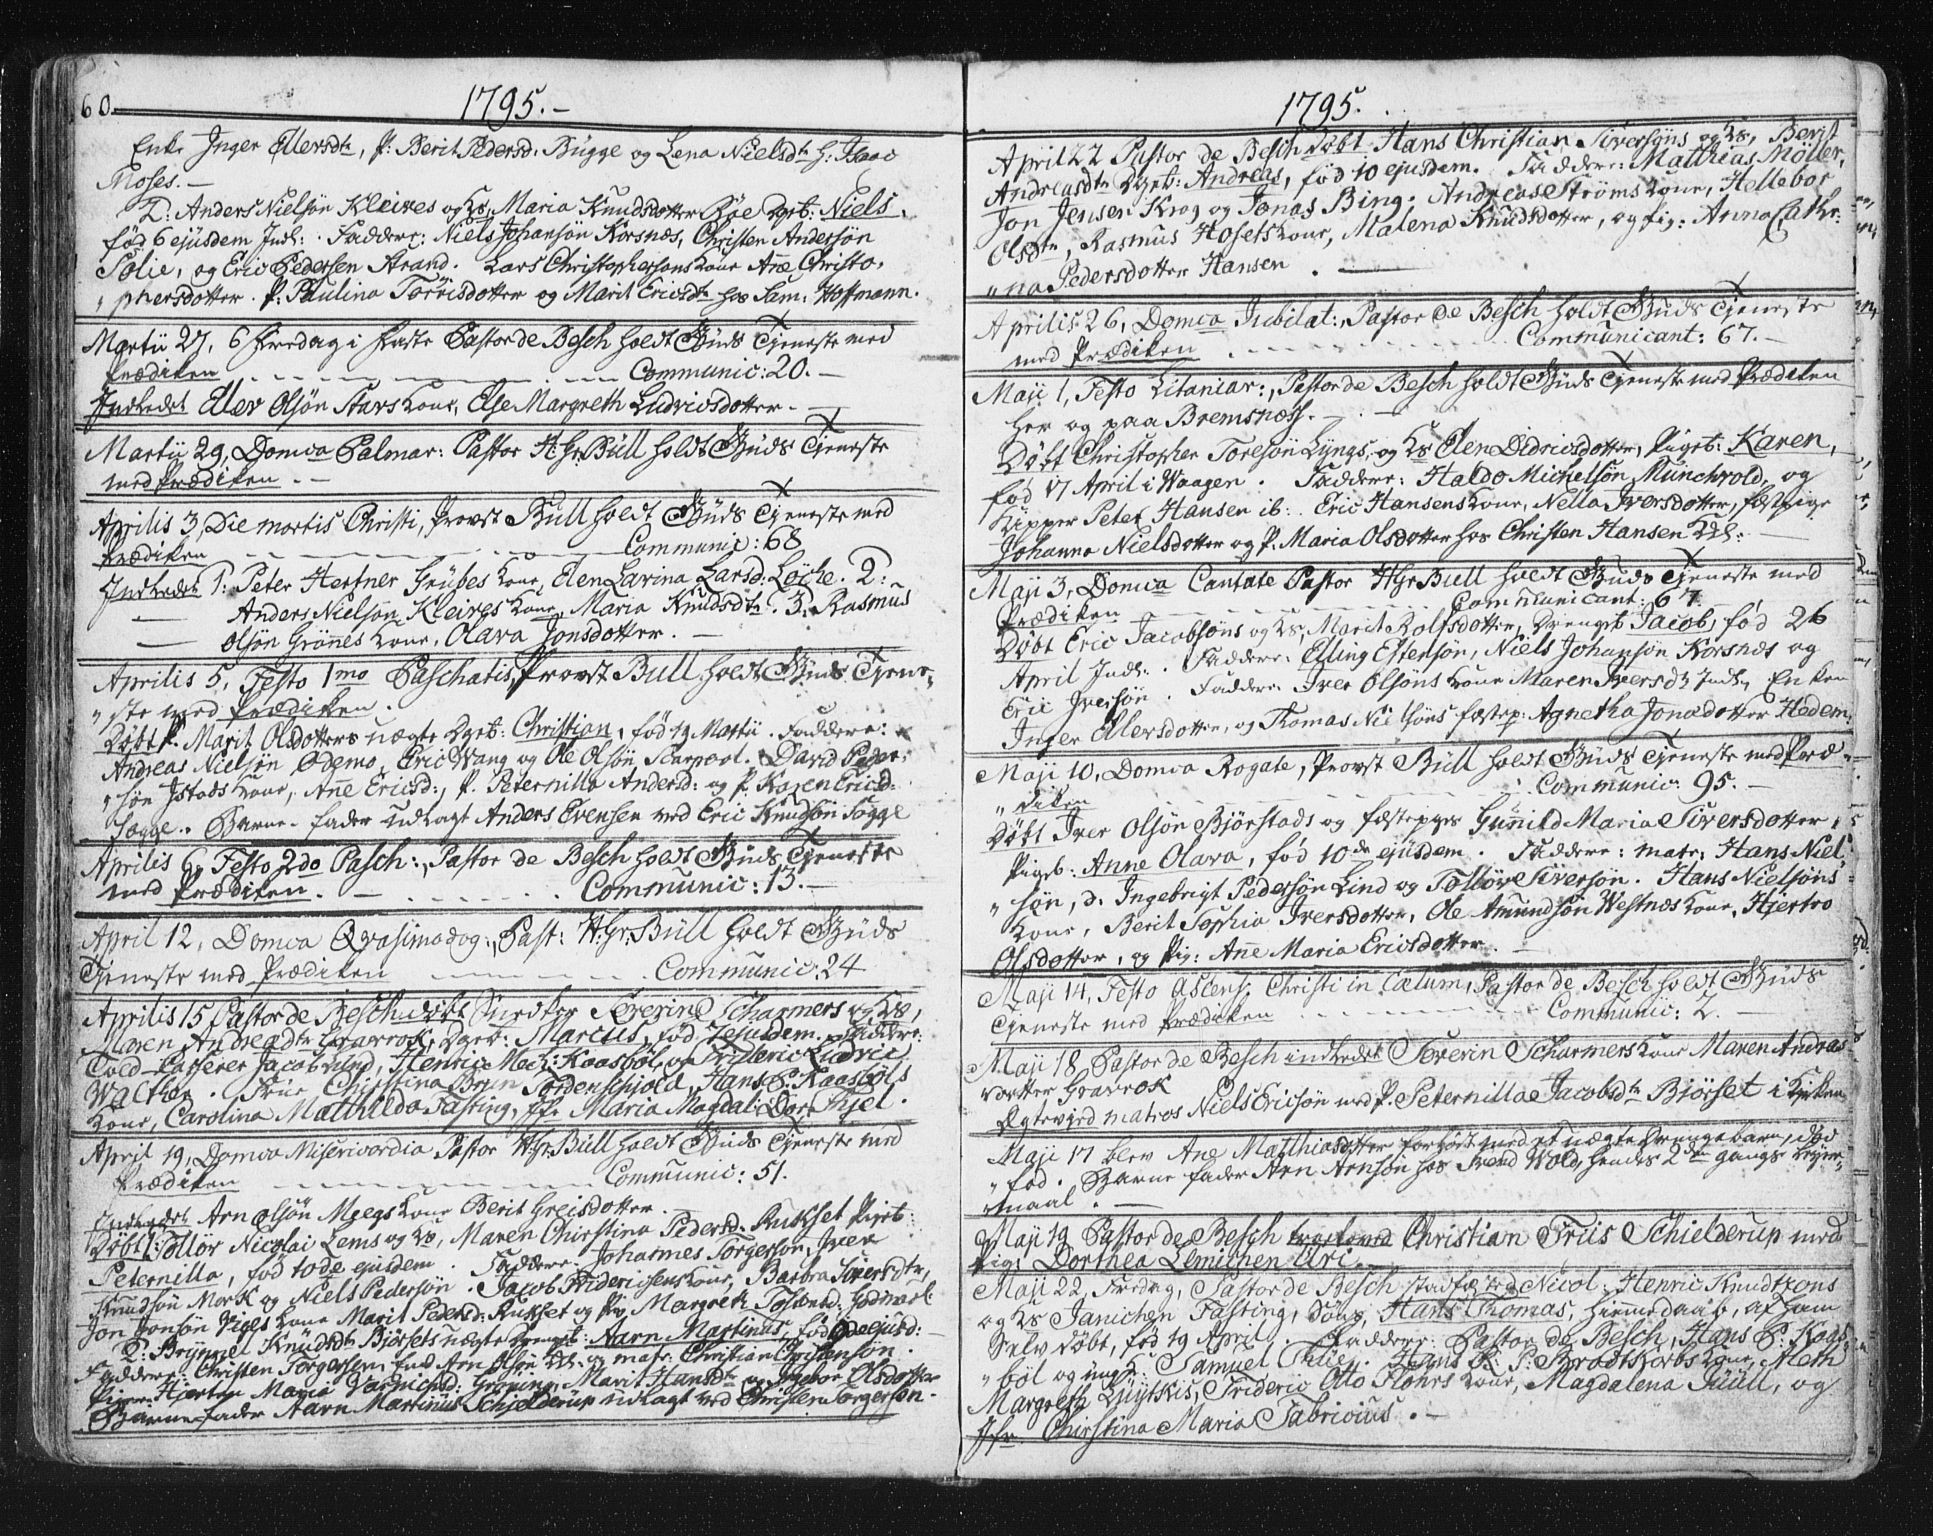 60.
1795.-
Enke Inger Ellersdtr, P: Berit Pedersd: Bügge og Lena Nielsdtr H: Isaac
Moses.-
2: Anders Nielsön Kleives og Ks, Maria Knudsdotter Böe Dgeb: Niels,
född 6 ejusdem Indl: . Faddere: Niels Johansön Korsnæs, Christen Andersön
Folie, og Eric Pedersen Strand. Lars Christophersens kone Ane Christo-
" phersdotter. P: Paulina Torrisdotter og Marit Ericsdtr hos Sam: Hoffmann.
Martii 27, 6 Fredag i Faste Pastor de Besch holdt Guds Tjeneste med
Prædiken Communic: 20.-
Indledet Elev Olsön Stavs kone, Else Margreth Ludvicsdotter.-
Martii 29, Domca Palmar: Pastor H: Gr: Büll holdt Guds Tjeneste
med Prædiken.-
Aprilis 3, Die mortis Christi, Provst Büll holdt Guds Tjeneste med
Prædiken Communic: 68
Indledet 1: Peter Hertner Grübes kone, Elen Larina Larsd: Löche. 2:
Anders Nielsön Kleives kone, Maria Knudsdtr. 3: Rasmus
Olsön Grönes kone, Olava Jonsdotter.-
Aprilis 5, Festo 1mo Paschatis, Provst Büll holdt Guds Tjene-
" ste med Prædiken.
Döbt P. Marit Olsdotters uægte Dgeb: Christian, född 19 Martii. Faddere:
Andreas Nielsön Ödemo, Eric Wang og Ole Olsön Skarpool. David Peder-
" sön Istads kone, Ane Ericsd:, P. Peternilla Andersd: og P. Karen Ericsd:
Fogge. Barne-fader udlagt Anders Evensen ved Eric Knudsön Fogge
Aprilis 6, Festo 2do Pasch:, Pastor de Besch holdt Guds Tjeneste
med Prædiken.- Communic: 13.-
April 12, Domca Qvasimodog:, Past: H: Gr: Büll holdt Guds
Tjeneste med Prædiken Communic: 24
Aprilis 15 Pastor de Besch döbt Snedker Severin Scharmers og Ks,
Maren Andreadtr Gravrok, Dgeb: Marcus, föd 7 ejusdem. Faddere:
Told-Passerer Jacob Lund, Henric Mech: Kaasböl, og Frideric Ludvic
Walther. Frue Christina Brun Tordenschjold, Hans P. Kaasböls
kone, Carolina Matthilda Fasting, Jfr. Maria Magdal: Dor: Thjel.
April 19, Domca Misericordia Pastor H: Gr: Büll holdt Guds Tjeneste med
Prædiken Communic: 51.
Indledet Arn Olsön Meegs kone Berit Greisdotter.
Döbt 1: Tollör Nicolai Lems og Ks, Maren Christina Pedersd: Rukset Pigeb:
Peternilla, född 10de ejusdem. Faddere: Johannes Torgersön, Iver
Knudsön Mork og Niels Pedersön. Jacob Fridericsens kone, Barbra Iversdtr,
Jon Jonsön Viigs kone Marit Pedersd: Rukset og Pig: Margreth Tostensd: Godvaek
2: Brynnel Knudsdtr Bjørsets uægte Drengeb: Aarn Martinus, föd 6te ejusd:
Faddere: Christen Torgersen, Arn Olsön og matr: Christian Christensön.
Piger: Hjertru Maria Varnichsd: Gröning, Marit Hansdtr og Ingebor Olsdotter
Barne-fader Aarn Martinus Schjelderup udlagt ved Christen Torgersön.
1795.
April 22 Pastor de Besch döbt Hans Christian Siversöns og Ks, Berit
Andreasdtr Dgeb: Andreas, föd 10 ejusdem. Faddere: Matthias Möller,
Jon Jensen Krog og Jonas Bing. Andreas Ströms kone, Hellebor
Olsdtr, Rasmus Hosets kone, Malena Knudsdotter, og Pig: Anna Cathr:
" na Pedersdotter Hansen.
Aprilis 26, Domca Jubilat:, Pastor de Besch holdt Guds Tjeneste
med Prædiken Communicant: 67.-
Maji 1, Festo Litaniar:, Pastor de Besch holdt Guds Tjeneste med Prædiken
her og paa Bremsnæss.-
Döbt Christopher Toresön Lyngs, og Ks Elen Didricsdotter, Pigeb: Karen,
föd 17 April i Waagen. Faddere: Haldo Michelsön Munchvold, og
Skipper Peter Hansen ib: Eric Hansens kone, Nella Iversdotter, Fæstpige
Johanna Nielsdotter og P. Maria Olsdotter hos Christen Hansen Udl:
Maji 3, Domca Cantate Pastor H Gr Büll holdt Guds Tjeneste med
Prædiken Communicant: 67.
Döbt Eric Jacobsöns og Ks, Marit Rolfsdotter, Drengeb Jacob, föd 26
April Indl:. Faddere: Elling Estensön, Niels Johansön Korsnæs og
Eric Iversön. Faddere: Iver Olsöns kone Maren Iversdtr Indl, Enken
Inger Ellersdotter, og Thomas Nielsöns fæstep: Agnetha Jonædotter Hedem:
Maji 10, Domca Rogate, Provst Büll holdt Guds Tjeneste med Præ-
" diken Communic: 95.-
Döbt Iver Olsön Bjørstads og fæstepiges Gunild Maria Siversdotter,
Pigeb: Anne Olava, föd 10de ejusdem. Faddere: matr: Hans Niel-
" sön, d: Ingebrigt Pedersön Lind og Tollöv Siversön. Hans Nielsöns
kone, Berit Sophia Iversdotter, Ole Amundsön Westnæs kone, Hjertro
Olsdotter, og Pig: Ane Maria Ericsdotter.
Maji 14, Festo Ascens: Christi in Cælum, Pastor de Besch holdt Guds
Tjeneste med Prædiken Communic: 2.-
Maji 18 Pastor de Besch indledet Severin Scharmers kone Maren Andreas
dotter Gravrok
Ægteviet matros Niels Ericsön med P. Peternilla Jacobsdtr Bjørset i Kjrken
Maji 17 blev Ane Matthiasdotter forhørt med et uægte Drengebarn, död
" föd. Barne-fader Arn Arnsön hos Svend Wold, hendes 2den gangs Lejer-
maal.-
Maji 19 Pastor de Besch trolovet Christian Friis Schielderup med
Pig: Dorthea Lemichen Uri.-
Maji 22, Fredag, Pastor de Besch stadfæsted Nicol: Henric Knudtzons
og Ks Janichen Fasting, Söns, Hans Thomas, hjemedaab, af ham
Selv döbt, föd 19 April. Faddere: Pastor de Besch, Hans P. Kaas-
" böl og ungk. Samuel Thiie. Hans R. P: Brodtkorbs kone, Meth
Margreth Luytkis, Frideric Otto Flohrs kone, Magdalena Jüül, og
Jfr. Christina Maria Fabricius.-